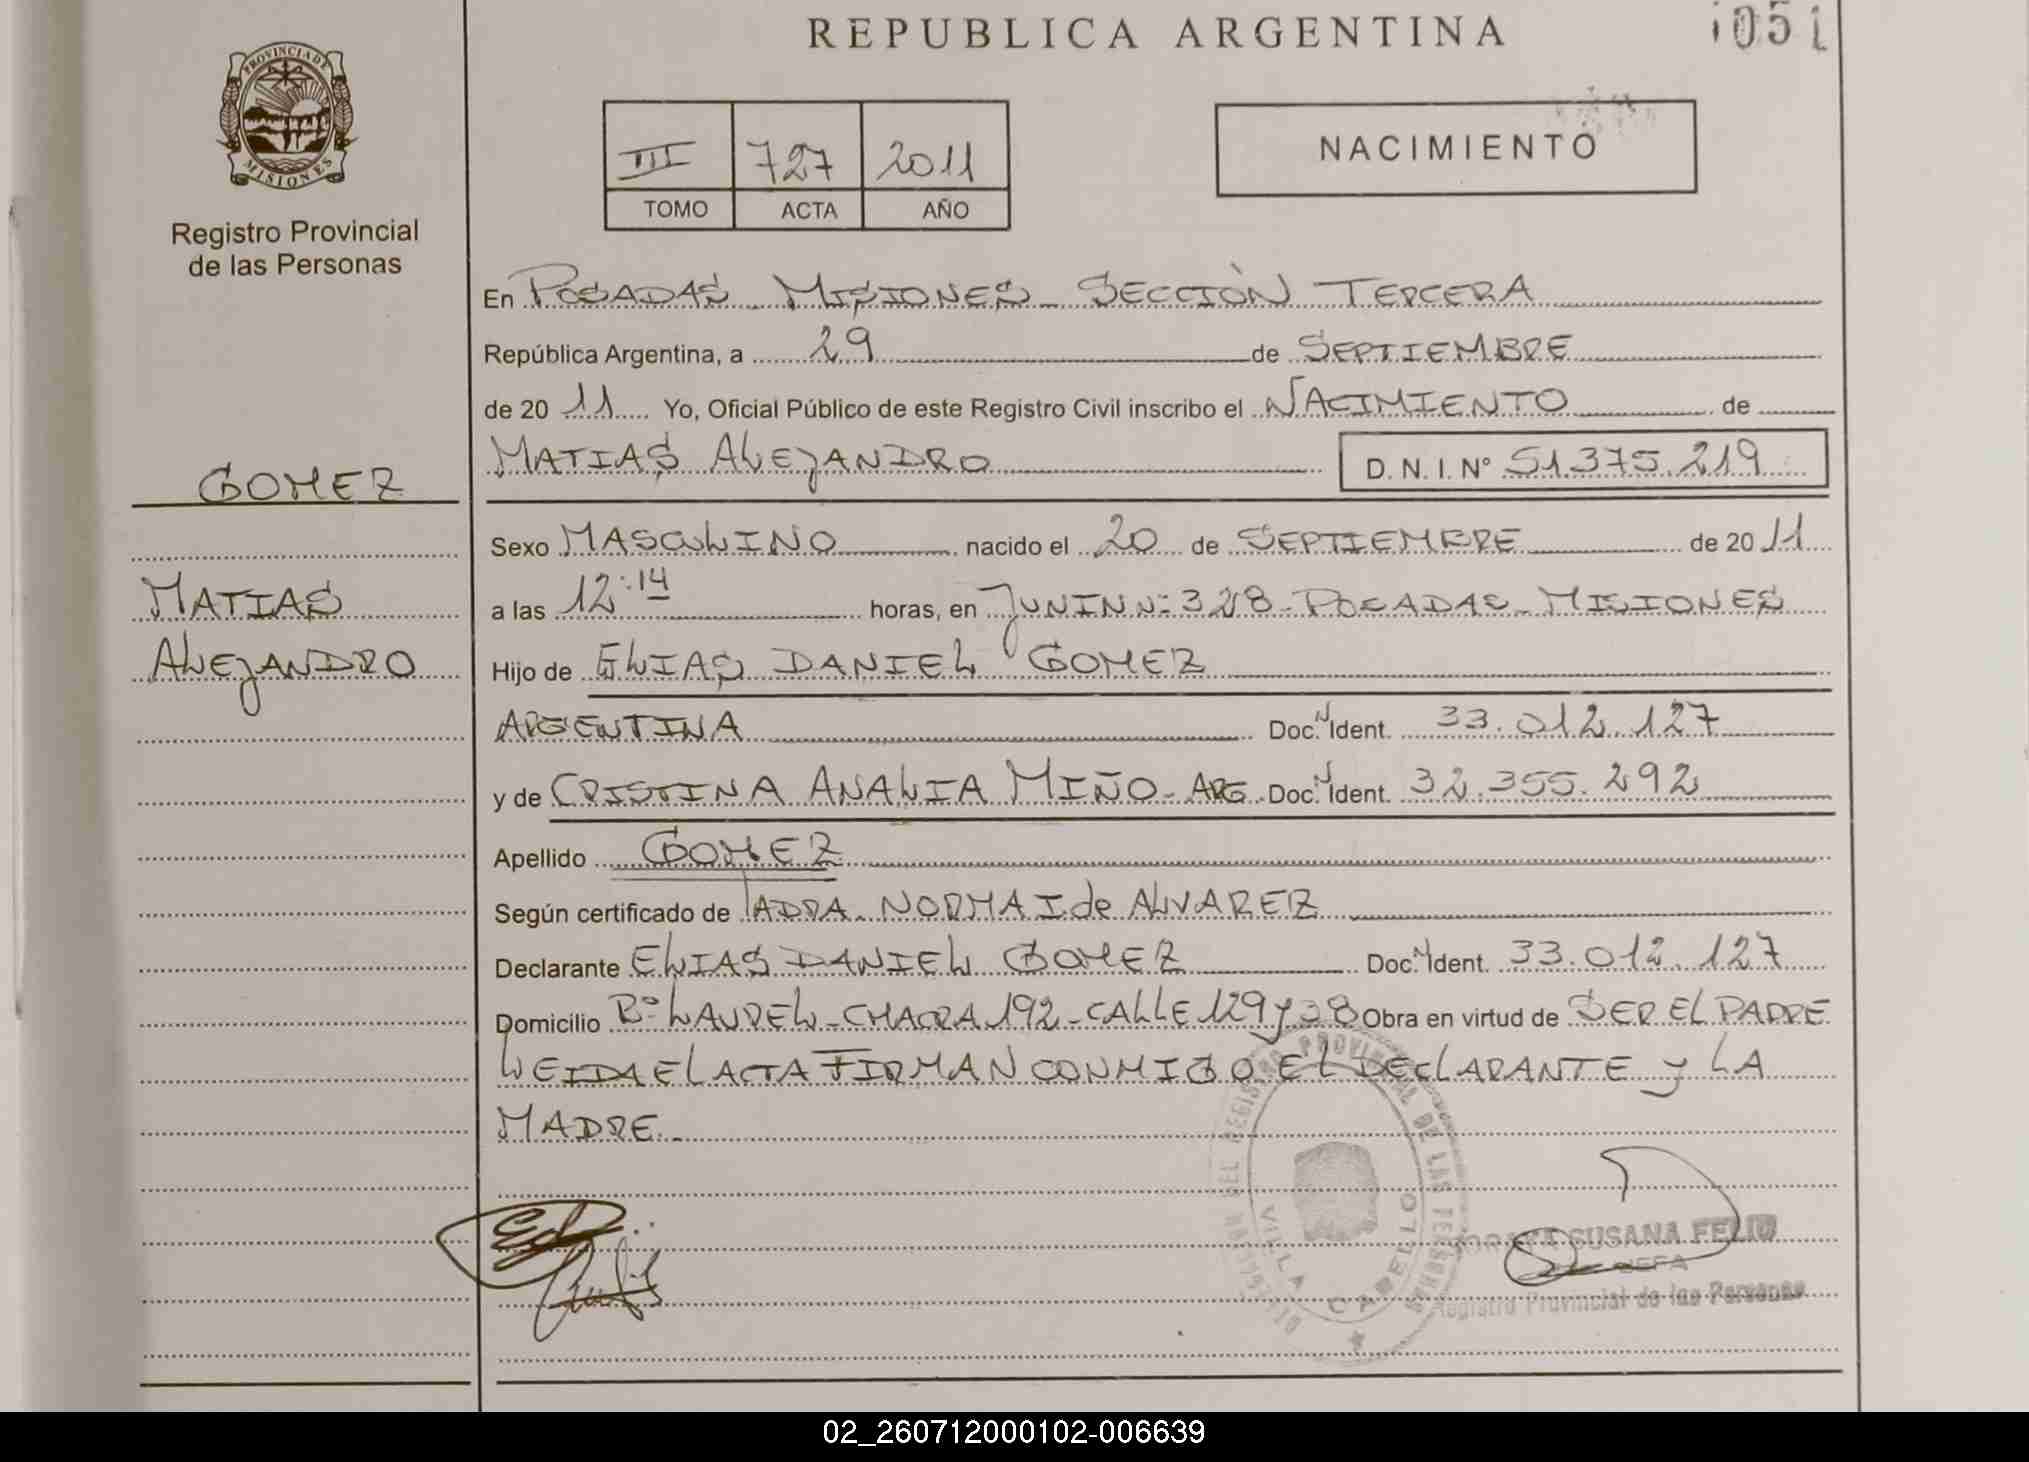 REPUBLICA ARGENTINA
1051
PROVINCIA DE
MISIONES
Registro Provincial
de las Personas
III 727 2011
TOMO ACTA AÑO
NACIMIENTO
En POSADAS - MISIONES - SECCIÓN TERCERA
República Argentina, a 29 de SEPTIEMBRE
de 20 11 Yo, Oficial Público de este Registro Civil inscribo el NACIMIENTO de
MATIAS ALEJANDRO D.N.I. N° 51.375.219
GOMEZ
MATIAS
ALEJANDRO
Sexo MASCULINO nacido el 20 de SEPTIEMBRE de 20 11
a las 12:14 horas, en JUNIN Nº 328 - POSADAS - MISIONES
Hijo de ELIAS DANIEL GOMEZ
ARGENTINA Doc. N Ident. 33.012.127
y de CRISTINA ANALIA MIÑO - ARG. Doc. N Ident. 32.355.292
Apellido GOMEZ
Según certificado de NORMA I. de ALVAREZ
Declarante ELIAS DANIEL GOMEZ Doc. N Ident. 33.012.127
Domicilio Bº LAUREL - CHACRA 192 - CALLE 129 y 38 Obra en virtud de SER EL PADRE
LEIDA EL ACTA FIRMAN CONMIGO EL DECLARANTE y LA
MADRE.-
REGISTRO PROVINCIAL DE LAS PERSONAS
VILLA CABELLO
SUSANA FELIU
JEFA
Registro Provincial de las Personas
02_260712000102-006639